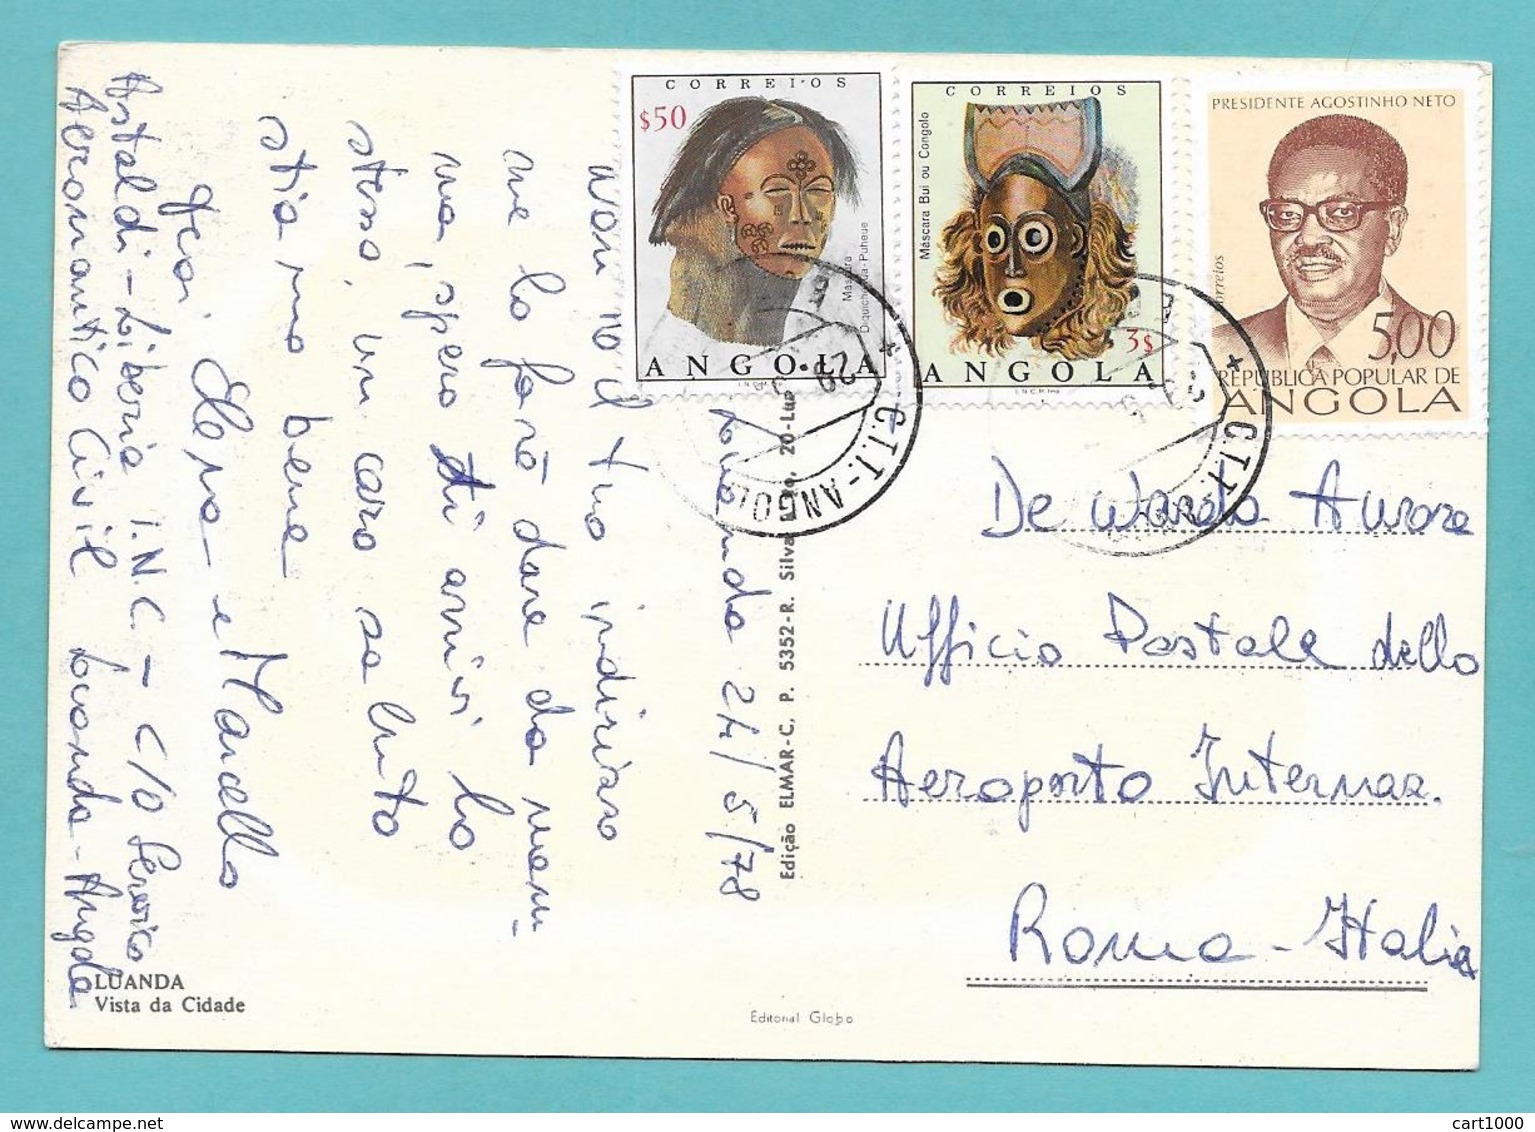 CORREIOS
$50
Máscara
ANGOLA
CORREIOS
Máscara Bui ou Congolo
3$
ANGOLA
I.N.C.M. Imp.
PRESIDENTE AGOSTINHO NETO
correios
5,00
REPÚBLICA POPULAR DE
ANGOLA
29
C.T.T. - ANGOLA
C.T.T.
Luanda 24/5/78
non no il tuo indirizzo
me lo farò dare da mam-
ma, spero ti arrivi lo
stesso, un caro saluto
stiamo bene
Elena e Marcello
Astaldi - Liberia I.N.C. - c/o Servico
Aeronautico Civil Luanda - Angola
De Wardo Aurora
Ufficio Postale dello
Aeroporto Internaz.
Roma - Italia
Edição ELMAR-C. P. 5352-R. Silva 20-Lua
LUANDA
Vista da Cidade
Editorial Globo
cart1000